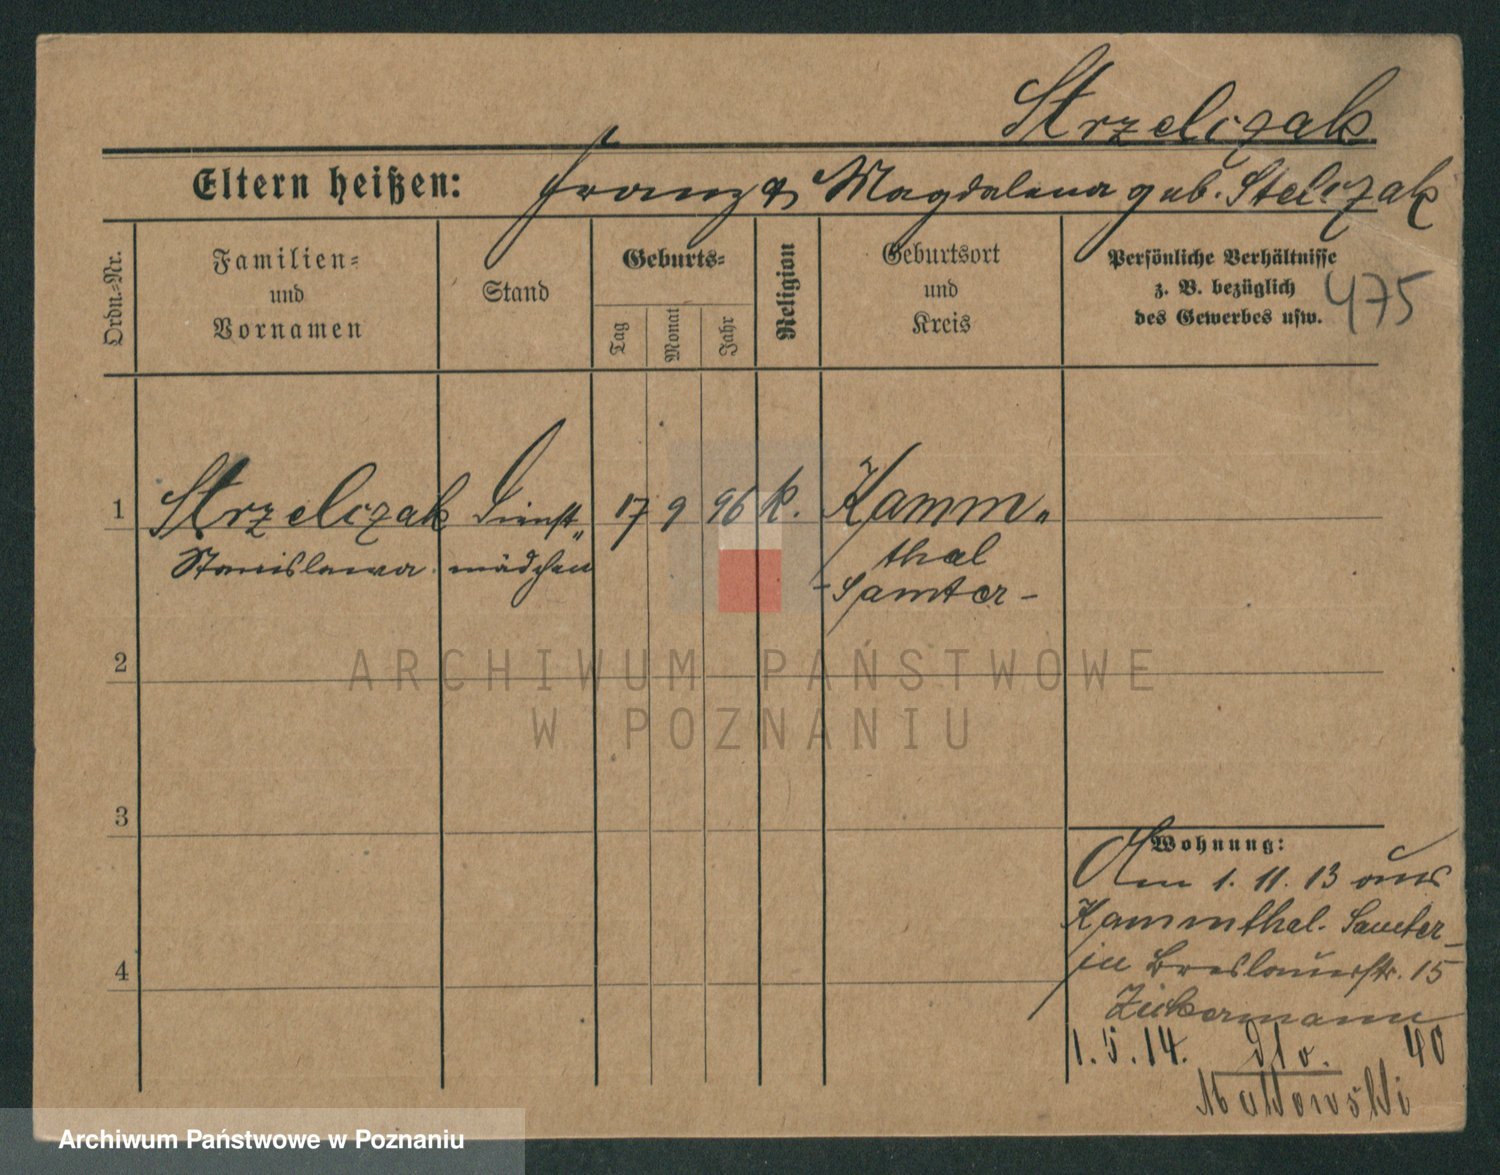 Strzelczak
Eltern heißen: Franz & Magdalena geb. Stelczak
Ordn.-Nr.
Familien-
und
Vornamen
Stand
Geburts-
Tag
Monat
Jahr
Religion
Geburtsort
und
Kreis
Persönliche Verhältnisse
z. B. bezüglich
des Gewerbes usw.
475
1 Strzelczak Dienst„ 17 9 96 k. Kamm„
Stanislawa. mädchen thal
-Samter-
2
ARCHIWUM PAŃSTWOWE
W POZNANIU
3
Wohnung:
Am 1. 11. 13 aus
Kammthal. Samter-
in Breslauerstr. 15
4
Zückermann
1. 5. 14. dto. 40
Makowski
Archiwum Państwowe w Poznaniu